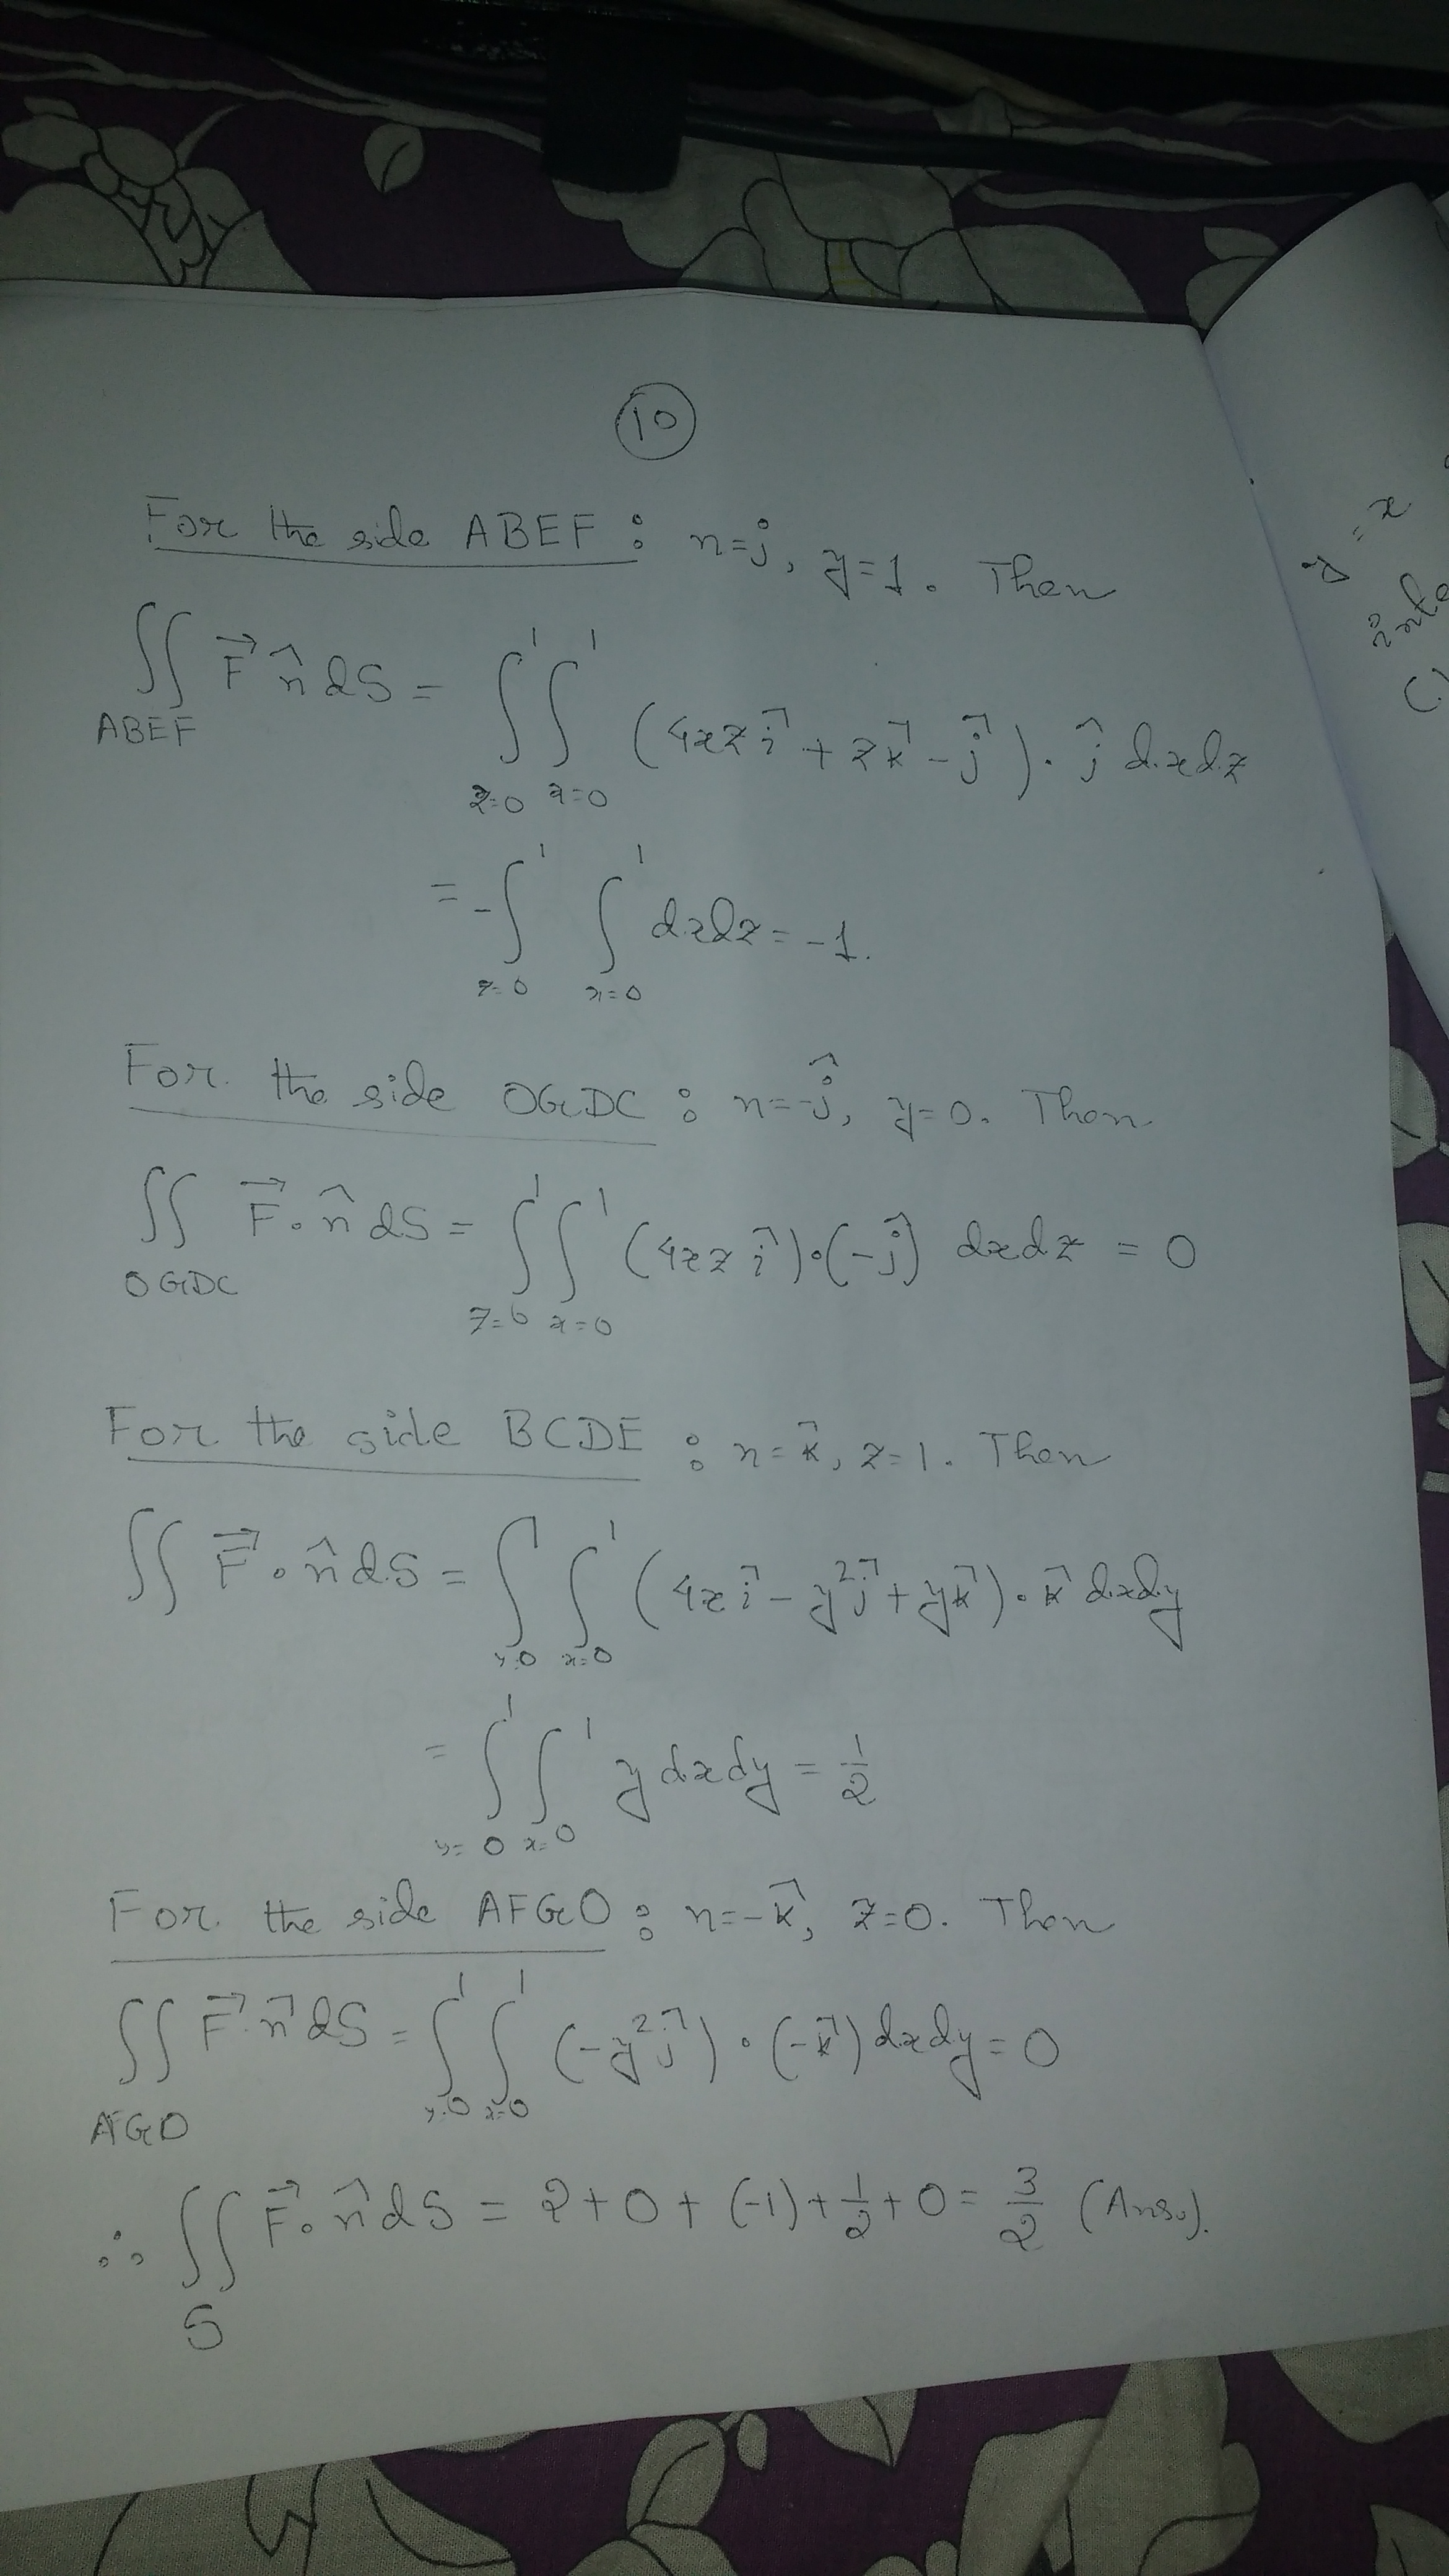 10
For the side ABEF : n=j, y=1. Then
∬ABEF F⃗ n̂ dS = ∫₍z=0₎¹ ∫₍x=0₎¹ (4xz i⃗ + z k⃗ - j⃗) · ĵ dxdz
= -∫₍z=0₎¹ ∫₍x=0₎¹ dxdz = -1.
For the side OGDC : n=-ĵ, y=0. Then
∬OGDC F⃗ · n̂ dS = ∫₍z=0₎¹ ∫₍x=0₎¹ (4xz i⃗) · (-ĵ) dxdz = 0
For the side BCDE : n=k̂, z=1. Then
∬ F⃗ · n̂ dS = ∫₍y=0₎¹ ∫₍x=0₎¹ (4x i⃗ - y² j⃗ + y k⃗) · k⃗ dxdy
= ∫₍y=0₎¹ ∫₍x=0₎¹ y dxdy = 1/2
For the side AFGO : n=-k⃗, z=0. Then
∬AFGO F⃗ · n⃗ dS = ∫₍y=0₎¹ ∫₍x=0₎¹ (-y² j⃗) · (-k⃗) dxdy = 0
∴ ∬S F⃗ · n̂ dS = 2+0+(-1)+1/2+0 = 3/2 (Ans.).
y = x